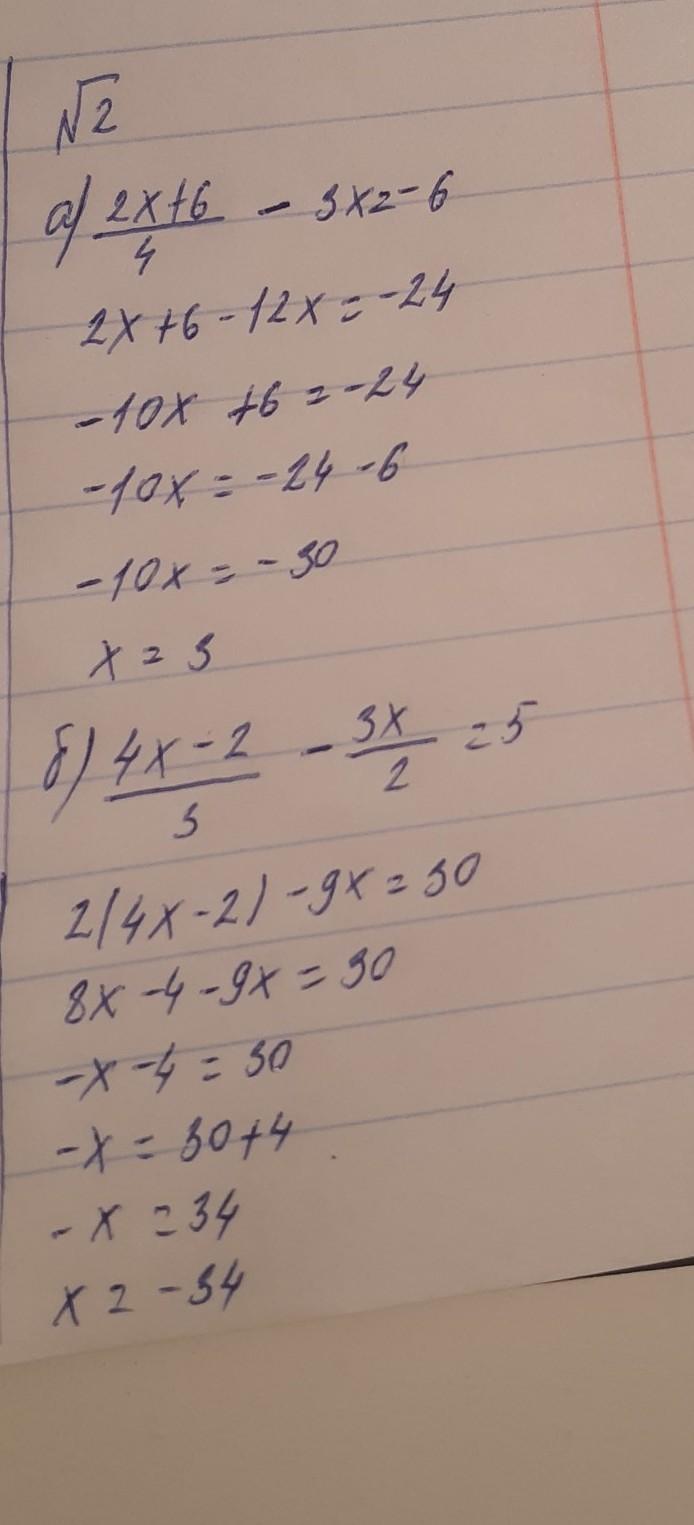 √2
а) (2x+6)/4 - 3x=-6
2x+6-12x=-24
-10x +6=-24
-10x=-24-6
-10x=-30
x=3
б) (4x-2)/3 - 3x/2 =5
2(4x-2)-9x=30
8x-4-9x=30
-x-4=30
-x=30+4
-x=34
x=-34